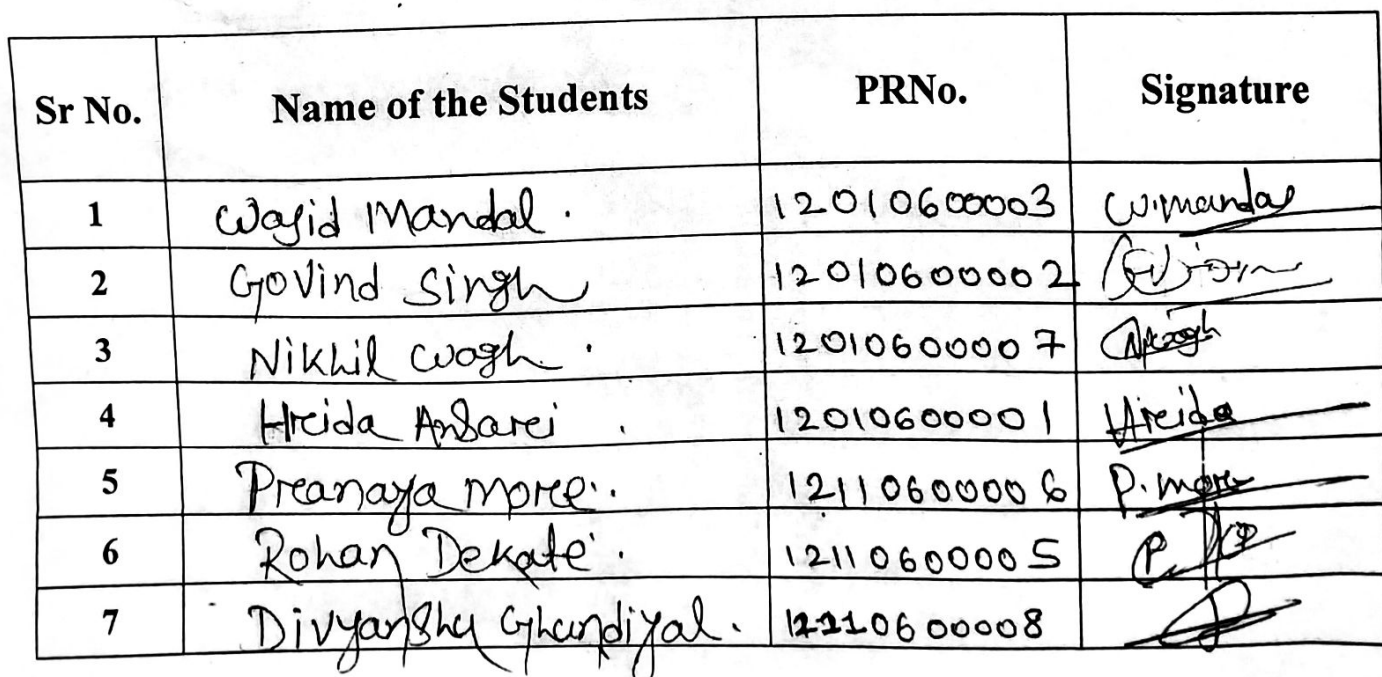 Sr No. Name of the Students PRNo. Signature
1 Wasid Mandal. 12010600003 W.mandal
2 Govind Singh 12010600002
3 Nikhil Wagh. 12010600007 NWagh
4 Hreida Ansarei. 12010600001 Hreida
5 Preanaya More. 12110600006 P. more
6 Rohan Dekate. 12110600005
7 Divyanshu Ghandiyal. 12210600008